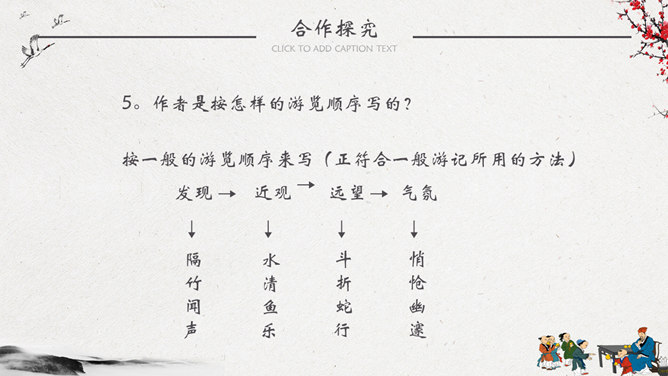 合作探究
CLICK TO ADD CAPTION TEXT
5。作者是按怎样的游览顺序写的？
按一般的游览顺序来写（正符合一般游记所用的方法）
发现→近观→远望→气氛
↓ ↓ ↓ ↓
隔 水 斗 悄
竹 清 折 怆
闻 鱼 蛇 幽
声 乐 行 邃